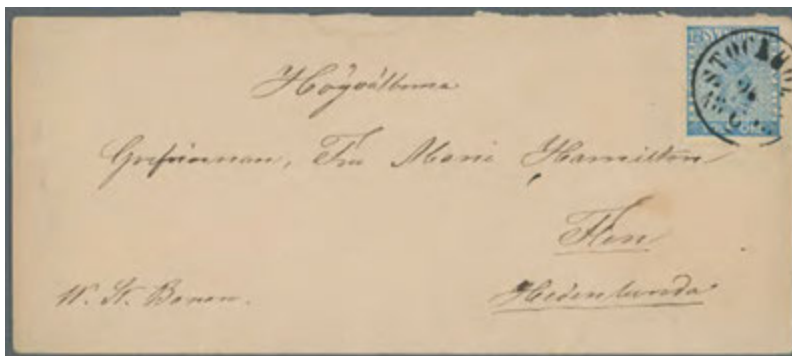 STOCKHOL
Högvälborna
Grefvinnan, Fru Marie Hamilton
Flen
W. St. Banan.
Hedenlunda